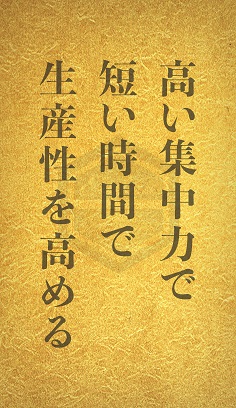 高い集中力で
短い時間で
生産性を高める